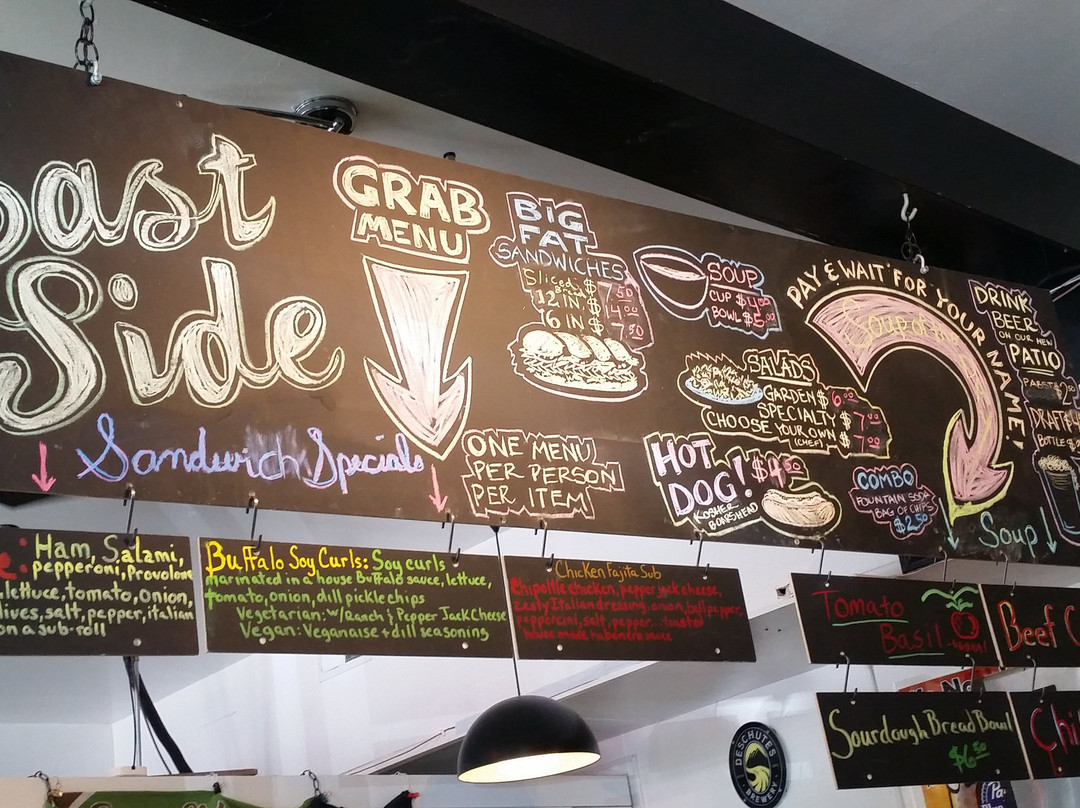 ast
Side
Sandwich Specials
GRAB
MENU
BIG
FAT
SANDWICHES
Sliced Bread $7.50
12 IN. $14.00
6 IN $7.50
ONE MENU
PER PERSON
PER ITEM
SOUP
CUP $4.00
BOWL $5.00
SALADS
GARDEN $6.00
SPECIALTY $7.00
CHOOSE YOUR OWN $7.00
(CHEF)
HOT
DOG! $4.50
KOSHER
BOARSHEAD
PAY & WAIT FOR YOUR NAME!
Soup of
COMBO
FOUNTAIN SODA
BAG OF CHIPS
$2.50
DRINK
BEER
ON OUR NEW
PATIO
PABST $2
DRAFT $4
BOTTLE $
Soup
Ham, Salami,
pepperoni, Provolone
lettuce, tomato, onion,
lives, salt, pepper, italian
on a sub-roll
Buffalo Soy Curls: Soy curls
marinated in a house Buffalo sauce, lettuce,
tomato, onion, dill pickle chips
Vegetarian: w/Ranch & Pepper Jack Cheese
Vegan: Veganaise + dill seasoning
Chicken Fajita Sub
Chipotle chicken, pepper jack cheese,
zesty Italian dressing, onion, bell pepper,
pepperoini, salt, pepper... toasted
house made habenero sauce
Tomato
Basil
Beef C
Sourdough Bread Bowl
$6.50
Chi
DESCHUTES
BREWERY